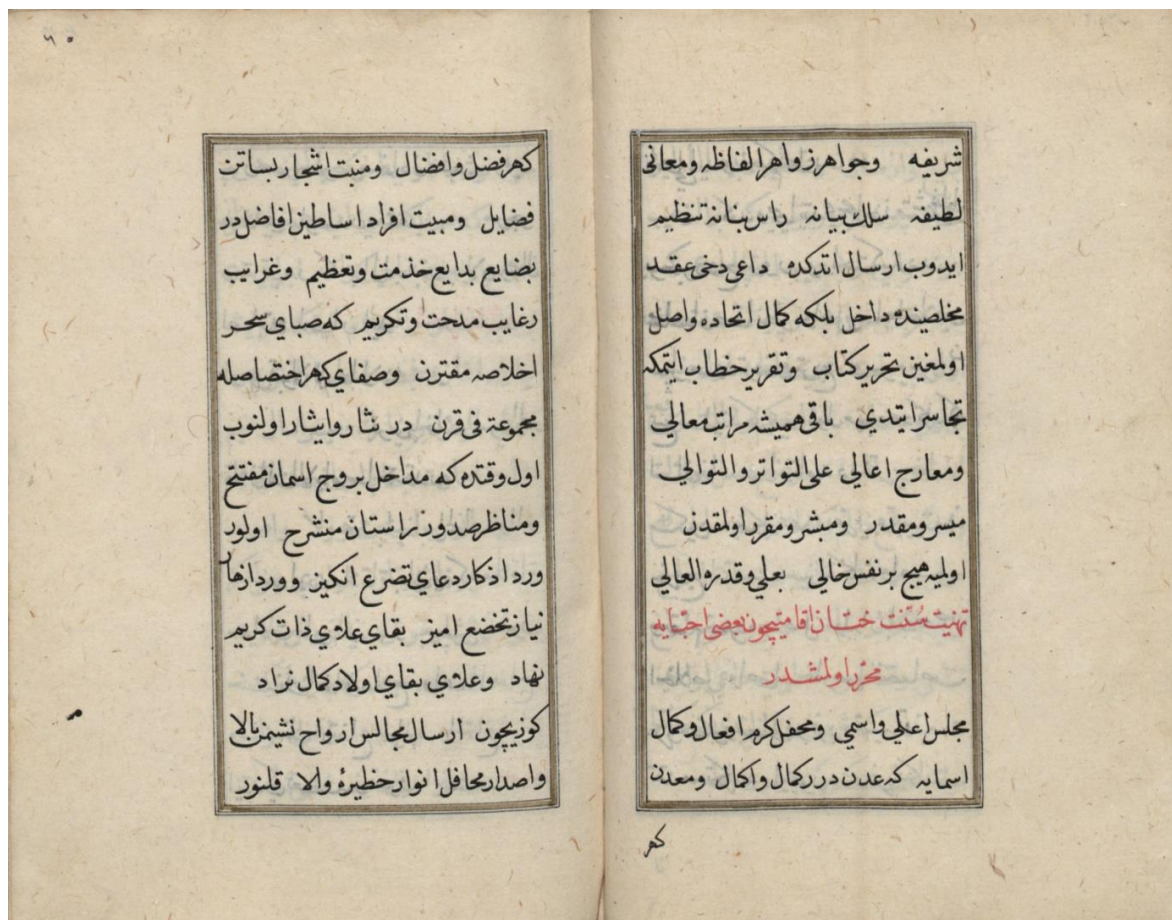 شريفه وجواهر زواهر الفاظه ومعانى
لطيفه سلك بيانه راس بنانه تنظيم
ايدوب ارسال اتدكده داعى دخى عقد
مخلصينده داخل بلكه كمال اتحاده واصل
اولمغين تحرير كتاب وتقرير خطاب ايتمكه
تجاسر ايتدي باقى هميشه مراتب معالي
ومعارج اعالي على التواتر والتوالي
ميسر ومقدر ومبشر ومقرر اولمقدن
اوليه هيچ بر نفس خالي بعلي وقدره العالي
تهنيت سنت ختان اقامتيچون بعضى احبايه
محرر اولمشدر
مجلس اعلي واسمي ومحفل كرم افعال وكمال
اسمايه كه عدن درر كمال واكمال ومعدن
كهر
٦٥
كهر فضل وافضال ومنبت اشجار بساتن
فضايل ومبيت افراد اساطين افاضل در
بضايع بدايع خذمت وتعظيم وغرايب
رغايب مدحت وتكريم كه صباي سحر
اخلاصه مقترن وصفاي كهر اختصاصله
مجموعة فى قرن در نثار وايثار اولنوب
اول وقتده كه مداخل بروج اسمان مفتتح
ومناظر صدور راستان منشرح اولور
ورد اذكار دعاي تضرع انكيز وورد ازهار
نياز تخضع اميز بقاي علاي ذات كريم
نهاد وعلاي بقاي اولاد كمال نراد
كوزيچون ارسال مجالس ارواح نشيمن بالا
واصدار محافل انوار حظيرهٔ والا قلنور